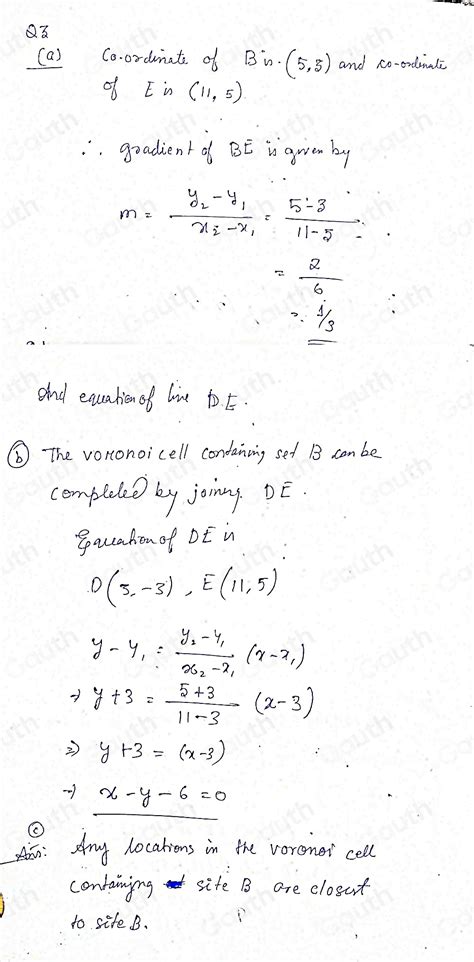 Q3
(a) Co-ordinate of B is (5,3) and co-ordinate
of E is (11, 5)
∴ gradient of BE is given by
m = y₂-y₁ / x₂-x₁ = 5-3 / 11-5
= 2/6
= 1/3
And equation of line DE.
(b) The voronoi cell containing set B can be
completed by joining DE.
Equation of DE is
D(3,-3), E(11,5)
y-y₁ = y₂-y₁ / x₂-x₁ (x-x₁)
→ y+3 = 5+3 / 11-3 (x-3)
⇒ y+3 = (x-3)
→ x-y-6=0
(c)
Ans: Any locations in the voronoi cell
containing site B are closest
to site B.